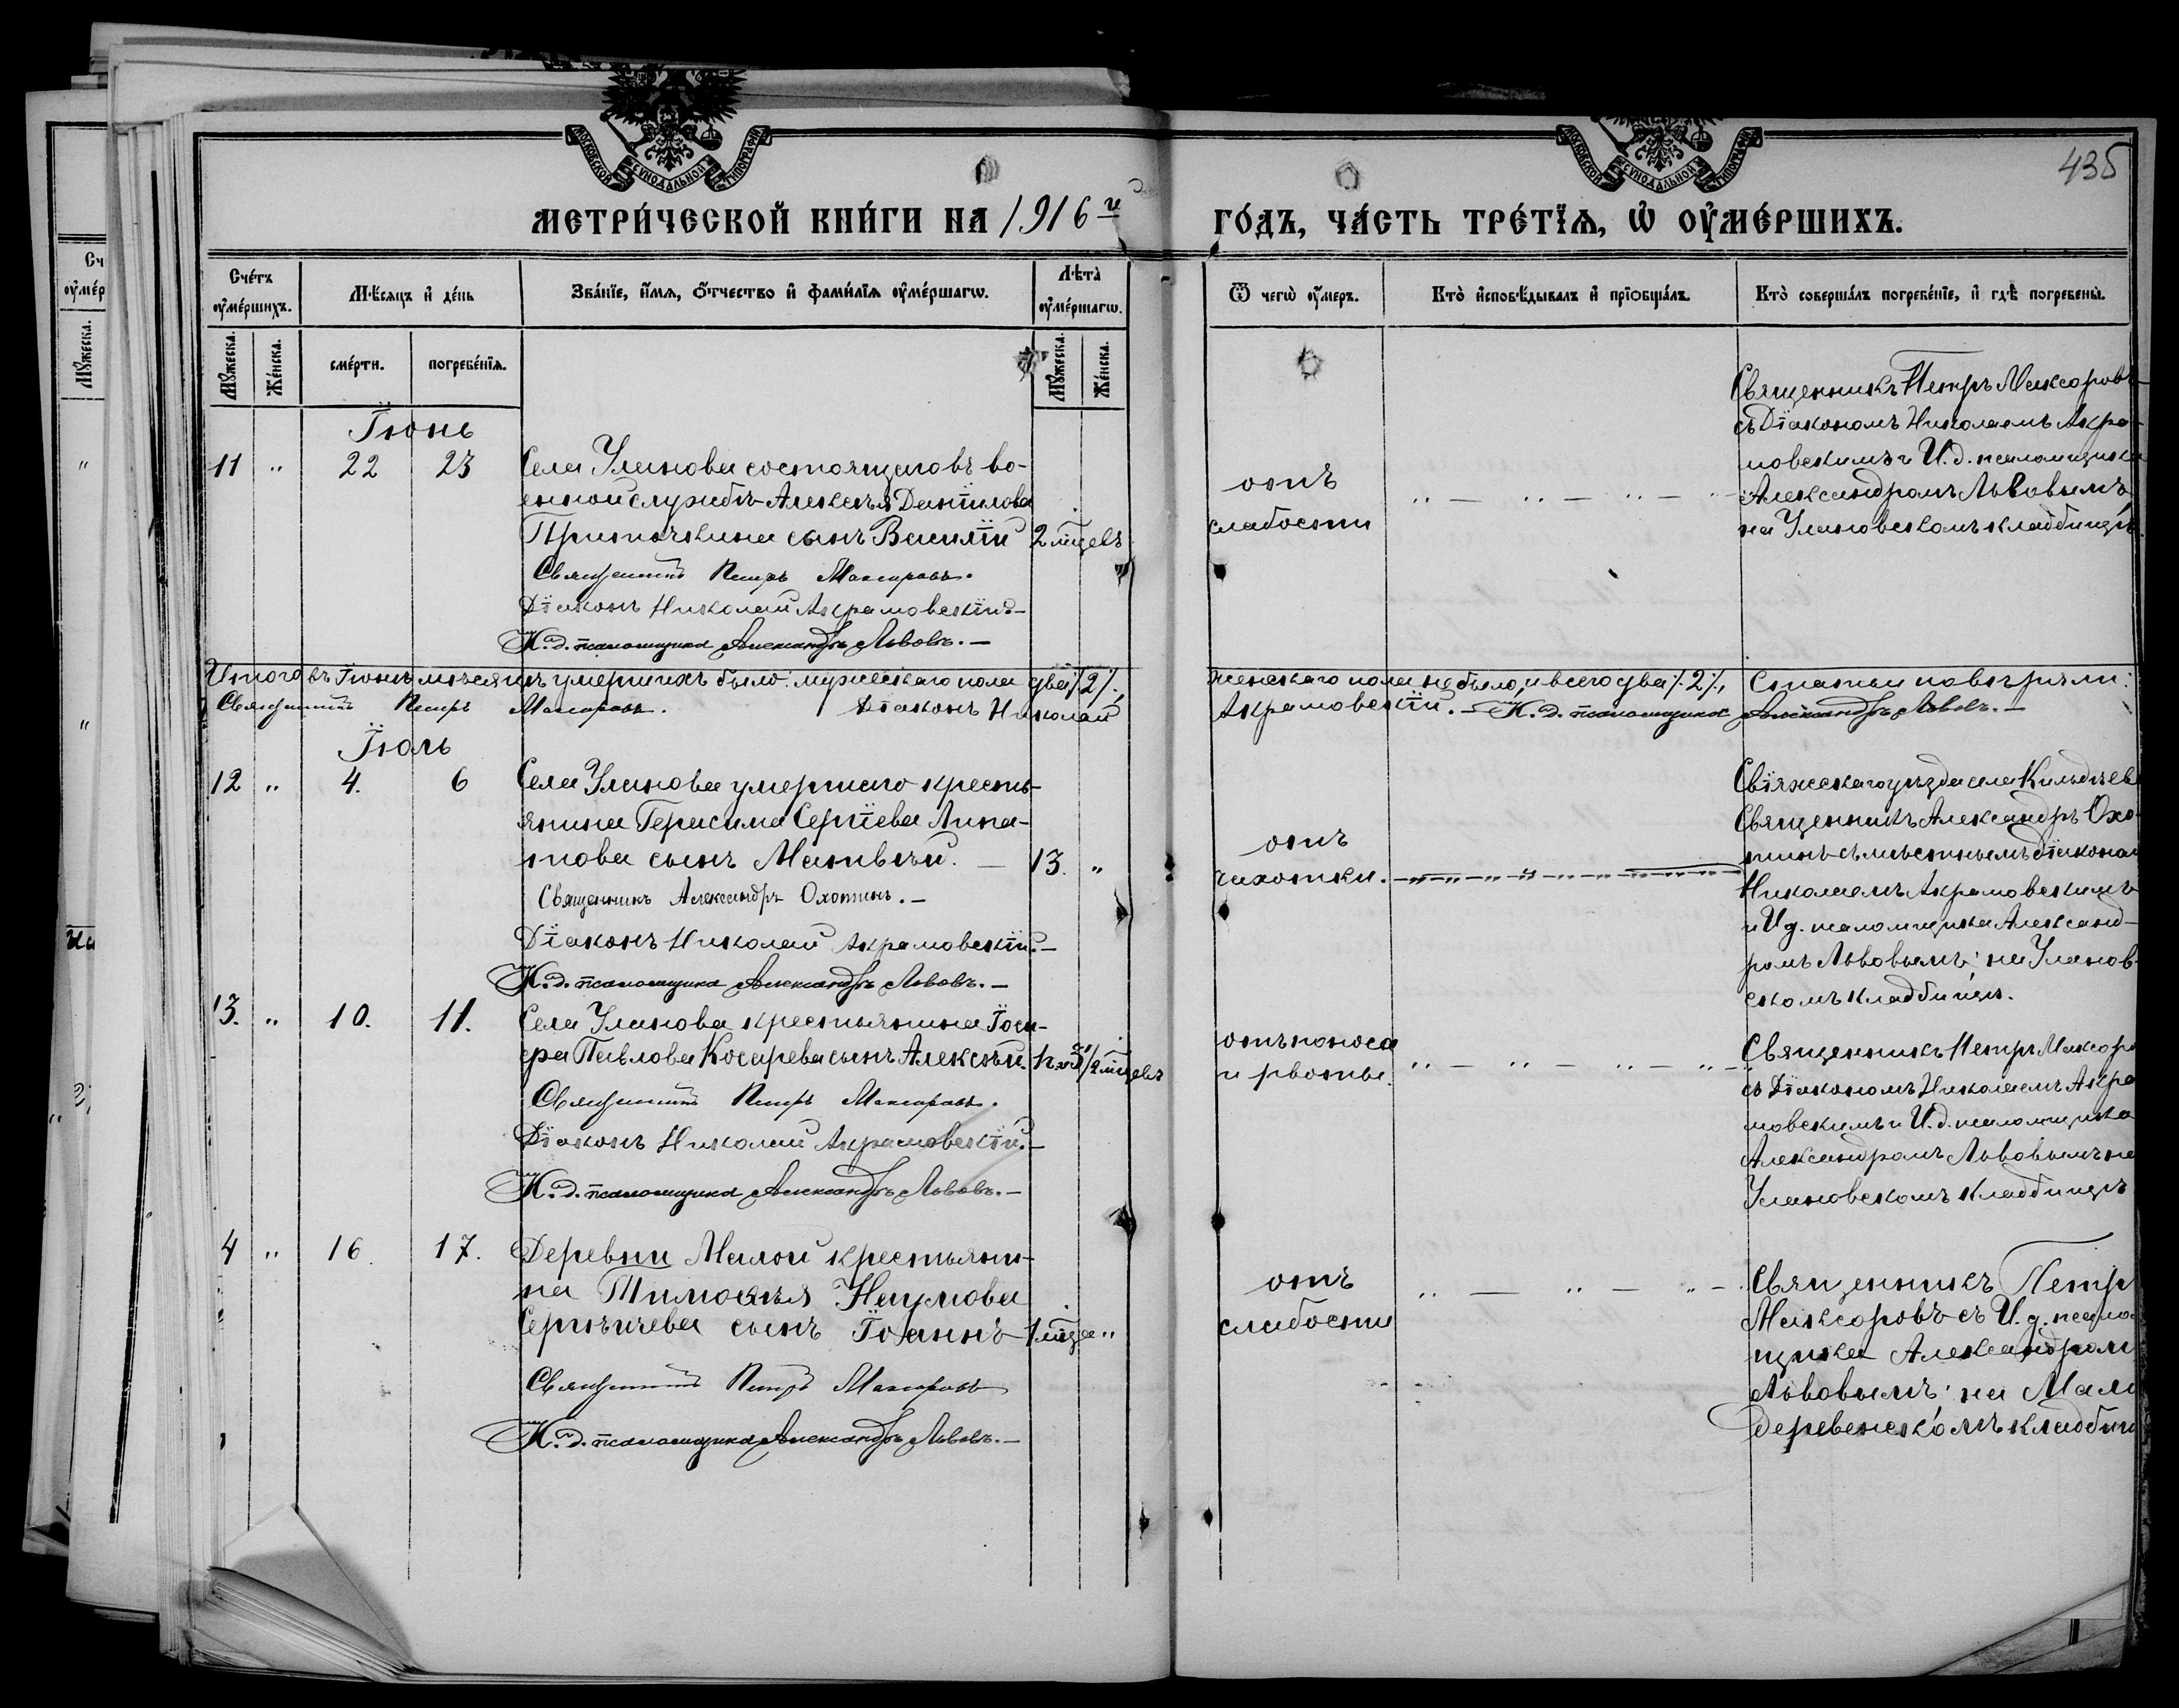 435
МОСКОВСКОЙ СѴНОДАЛЬНОЙ ТИПОГРАФІИ
МОСКОВСКОЙ СѴНОДАЛЬНОЙ ТИПОГРАФІИ
МЕТРИ́ЧЕСКОЙ КНИ́ГИ НА 1916й ГО́ДЪ, ЧА́СТЬ ТРЕ́ТЇѦ, Ѡ҆ ОУ҆МЕ́РШИХЪ.
Сче́тъ оу҆ме́ршихъ.
Мѣ́сяцъ и҆ де́нь
Зва́нїе, и҆́мя, о҆́тчество и҆ фами́лїя оу҆ме́ршагѡ.
Лѣ́та оу҆ме́ршагѡ.
Ѿ чегѡ̀ оу҆́меръ.
Кто̀ и҆сповѣ́дывалъ и҆ прїѡбща́лъ.
Кто̀ соверша́лъ погребе́нїе, и҆ гдѣ̀ погребены̀.
Мꙋ́жеска.
Же́нска.
сме́рти.
погребе́нїя.
Мꙋ́жеска.
Же́нска.
Іюнь
11 " 22 23
Села Уланова состоящаго въ во-
енной службѣ Алексѣя Данїилова
Приточкина сынъ Василїй 2 мѣцевъ
Священникъ Петръ Максоровъ.
Дїаконъ Николай Акрамовскїй.–
И. д. псаломщика Александръ Львовъ.–
отъ
слабости
" – " – " – "
Священникъ Петръ Максоровъ
съ Дїакономъ Николаемъ Акра-
мовскимъ и И.д. псаломщика
Александромъ Львовымъ
на Улановскомъ кладбищѣ.
Итого въ Іюнѣ мѣсяцѣ умершихъ было: мужескаго пола два /2/, женскаго пола не было, и всего два /2/, Статьи повѣряли:
Священникъ Петръ Максоровъ. Дїаконъ Николай Акрамовскїй.– И. д. псаломщика Александръ Львовъ.–
Іюль
12 " 4. 6
Села Уланова умершаго кресть-
янина Герасима Сергїева Липа-
това сынъ Матвѣй. – 13. "
Священникъ Александръ Охотинъ.–
Дїаконъ Николай Акрамовскїй.–
И. д. псаломщика Александръ Львовъ.–
отъ
чахотки.
Свїяжскаго уѣзда села Кильдѣев
Священникъ Александръ Охо-
тинъ съ мѣстнымъ дїаконом
Николаемъ Акрамовскимъ
и И д. псаломщика Александ-
ромъ Львовымъ; на Уланов-
скомъ кладбищѣ.
13. " 10. 11.
Села Уланова крестьянина Іоси-
фа Павлова Косарева сынъ Алексѣй.
Священникъ Петръ Максоровъ.
Дїаконъ Николай Акрамовскїй.–
И. д. псаломщика Александръ Львовъ.–
отъ поноса
и рвоты.
" – " – " – "
Священникъ Петръ Максоро
съ Дїакономъ Николаемъ Акра
мовскимъ и И.д. псаломщика
Александромъ Львовымъ на
Улановскомъ кладбищѣ
4 " 16. 17.
Деревни Малой крестьяни-
на Тимоѳея Наумова
Сергѣичева сынъ Іоаннъ 1 мѣца "
Священникъ Петръ Максоровъ
И. д. псаломщика Александръ Львовъ.–
отъ
слабости
" – " – " –
Священникъ Петр
Максоровъ съ И. д. псало
щика Александром
Львовымъ: на Мало
деревенскомъ кладбищ